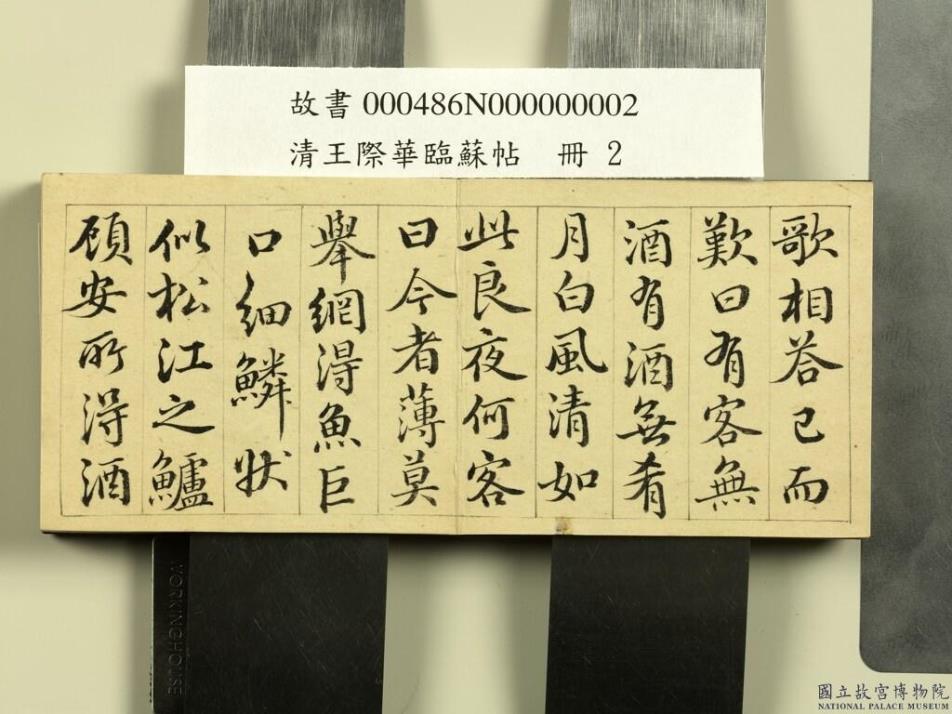 故書 000486N000000002
清王際華臨蘇帖 冊 2
歌相答已而
歎曰有客無
酒有酒無肴
月白風清如
此良夜何客
曰今者薄莫
舉網淂魚巨
口細鱗狀
似松江之鱸
顧安所淂酒
WORKINGHOUSE
國立故宮博物院
NATIONAL PALACE MUSEUM